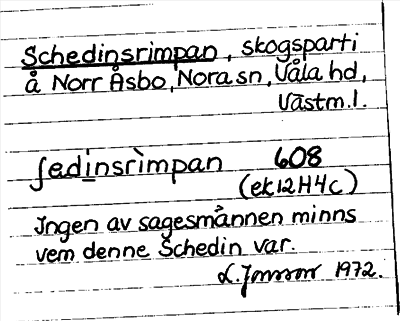 Schedinsrimpan, skogsparti
å Norr Åsbo, Nora sn, Våla hd,
Västm.l.
ʃedinsrìmpan 608
(ek 12H4c)
Ingen av sagesmännen minns
vem denne Schedin var.
L. Jonsson 1972.